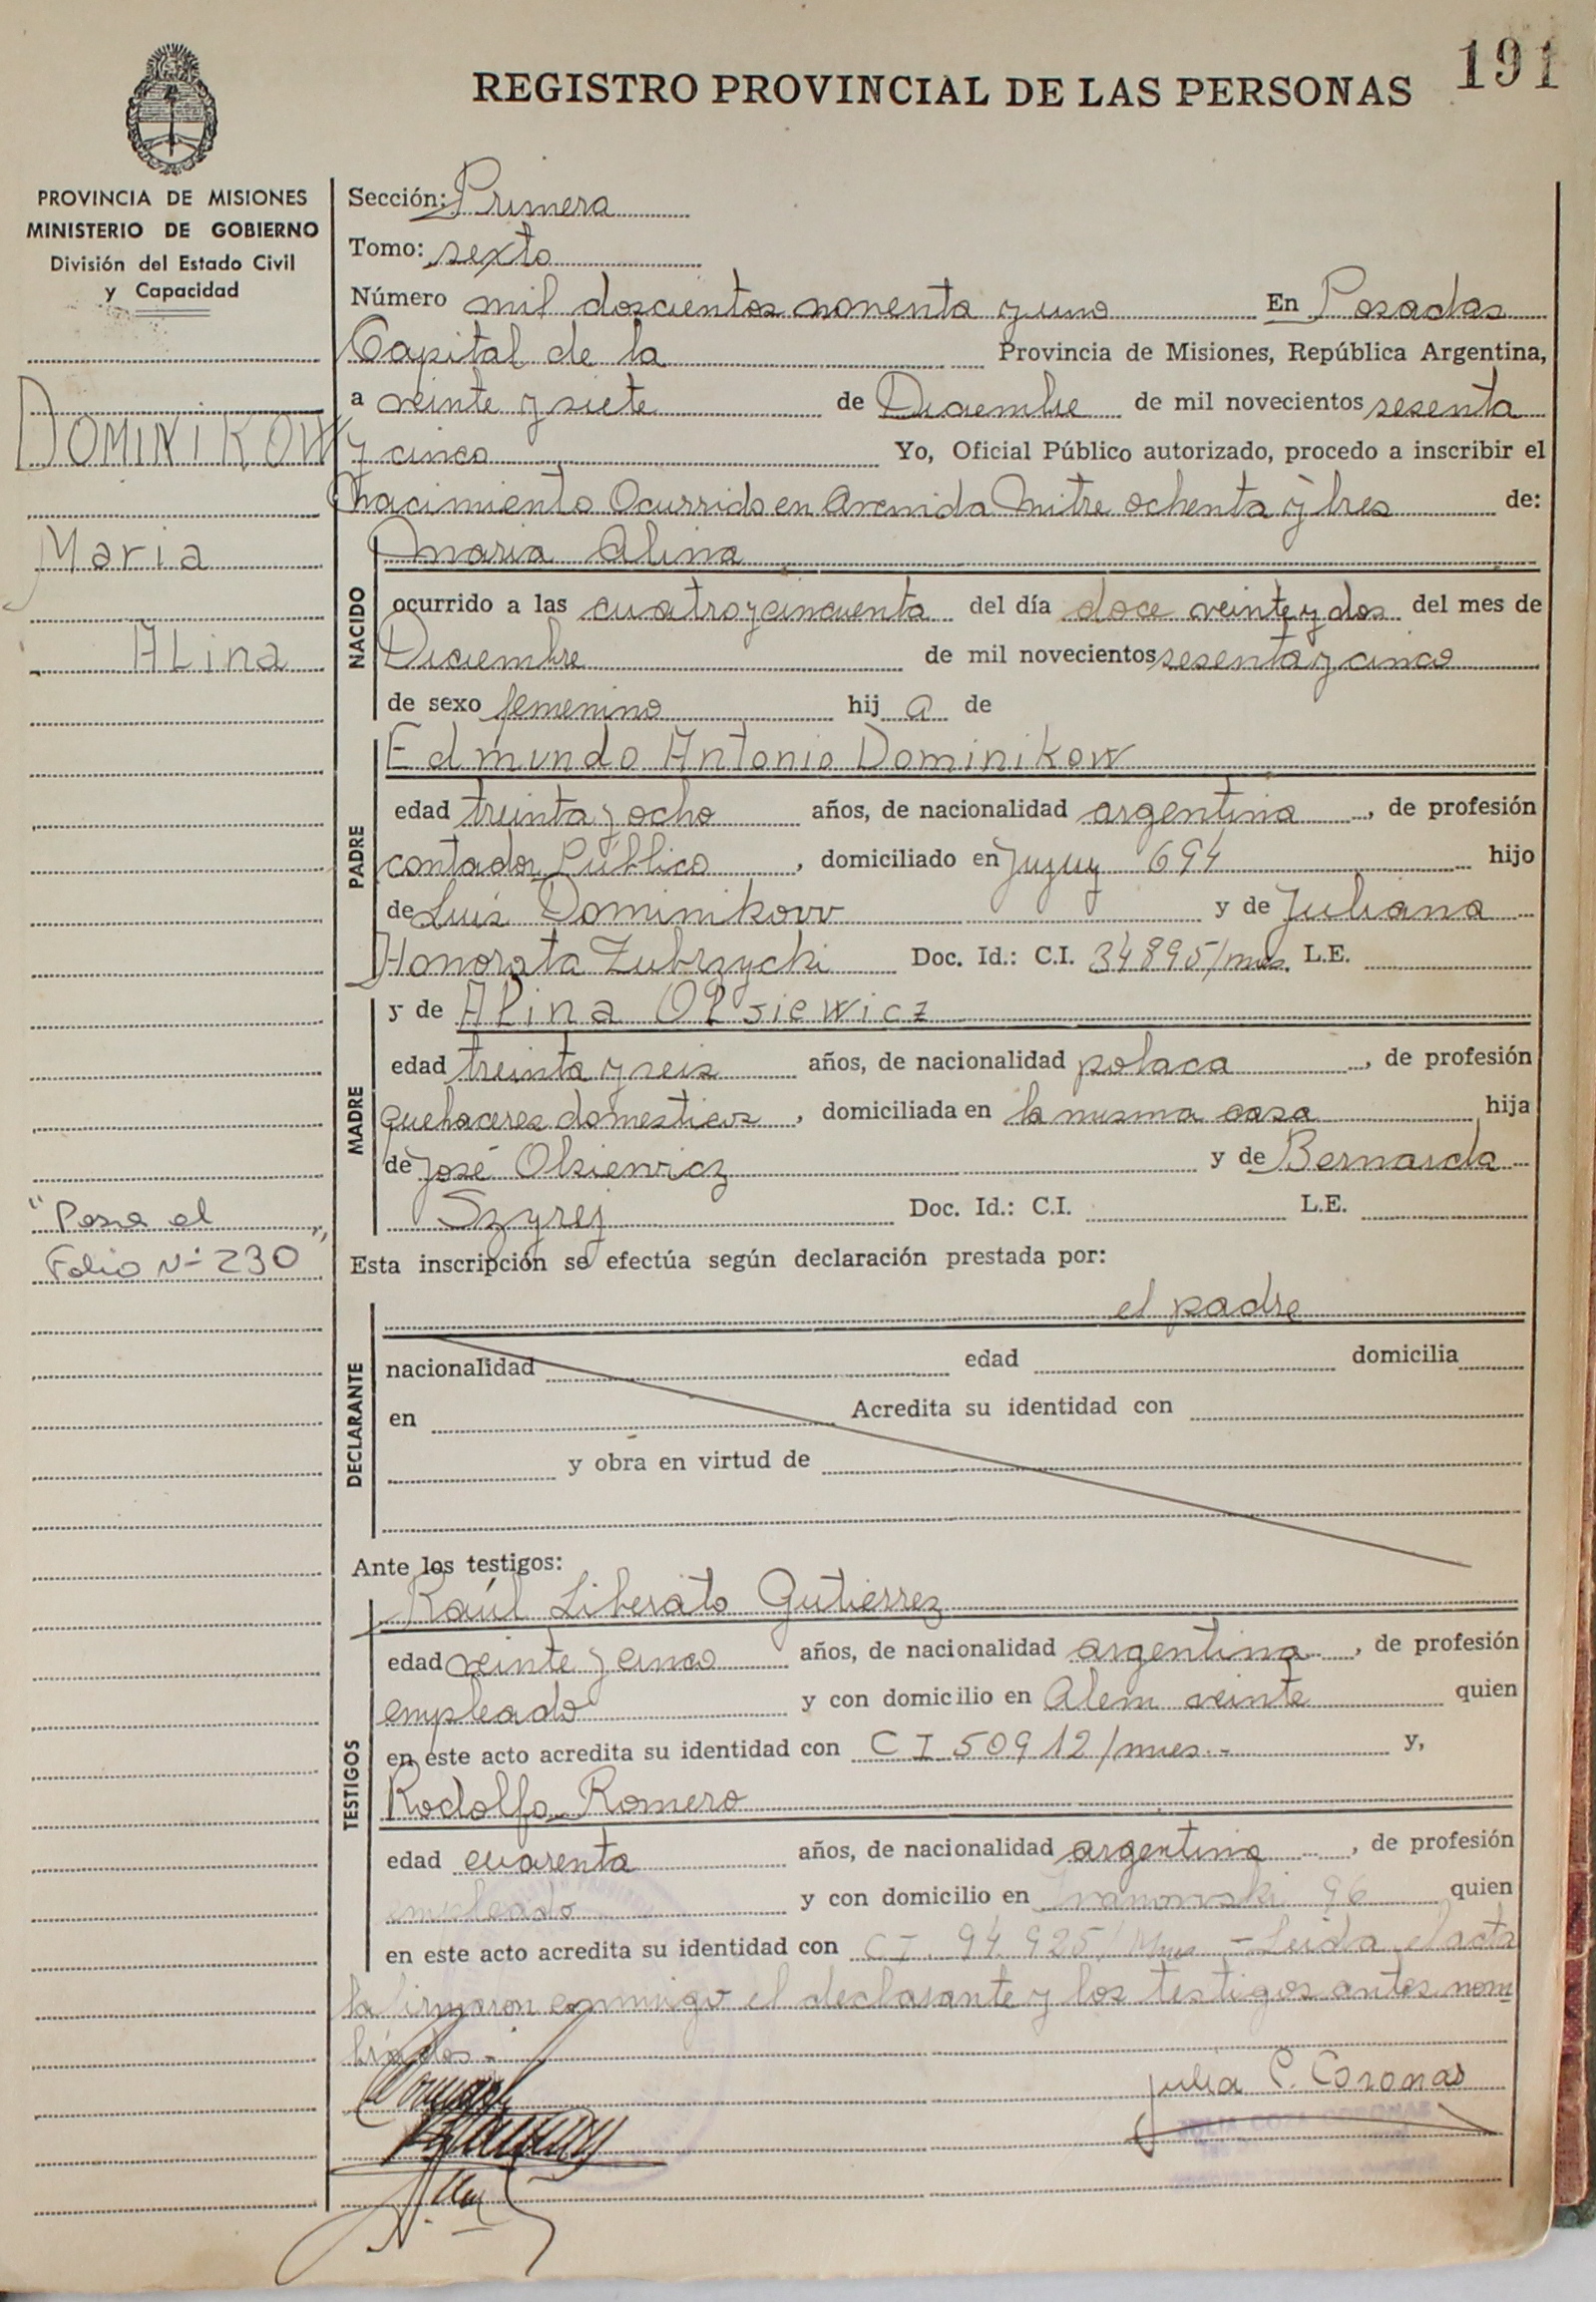 191
REGISTRO PROVINCIAL DE LAS PERSONAS
PROVINCIA DE MISIONES
MINISTERIO DE GOBIERNO
División del Estado Civil
y Capacidad
DOMINIKOW
Maria
ALina
"Pasa al
Folio Nº 230"
Sección: Primera
Tomo: sexto
Número mil doscientos noventa y uno En Posadas
Capital de la Provincia de Misiones, República Argentina,
a veinte y siete de Diciembre de mil novecientos sesenta
y cinco Yo, Oficial Público autorizado, procedo a inscribir el
nacimiento Ocurrido en Avenida Mitre ochenta y tres de:
Maria Alina
NACIDO
ocurrido a las cuatro y cincuenta del día doce veinte y dos del mes de
Diciembre de mil novecientos sesenta y cinco
de sexo femenino hij a de
PADRE
Edmundo Antonio Dominikow
edad treinta y ocho años, de nacionalidad argentina, de profesión
contador Público, domiciliado en Jujuy 694 hijo
de Luis Dominikow y de Juliana
Honorata Zubrzycki Doc. Id.: C.I. 34895/mis. L.E.
MADRE
y de ALina OLsiewicz
edad treinta y seis años, de nacionalidad polaca, de profesión
quehaceres domesticos, domiciliada en la misma casa hija
de José Olsiewicz y de Bernarda
Szyrej Doc. Id.: C.I. L.E.
Esta inscripción se efectúa según declaración prestada por:
el padre
DECLARANTE
nacionalidad edad domicilia
en Acredita su identidad con
y obra en virtud de
Ante los testigos:
TESTIGOS
Raúl Liberato Gutierrez
edad veinte y cinco años, de nacionalidad argentina, de profesión
empleado y con domicilio en Alem veinte quien
en este acto acredita su identidad con CI 50912/mis.- y,
Rodolfo Romero
edad cuarenta años, de nacionalidad argentina, de profesión
empleado y con domicilio en 96 quien
en este acto acredita su identidad con CI. 94925/Mis - Leida el acta
la firmaron conmigo el declarante y los testigos antes nom
brados.-
Julia C. Coronas